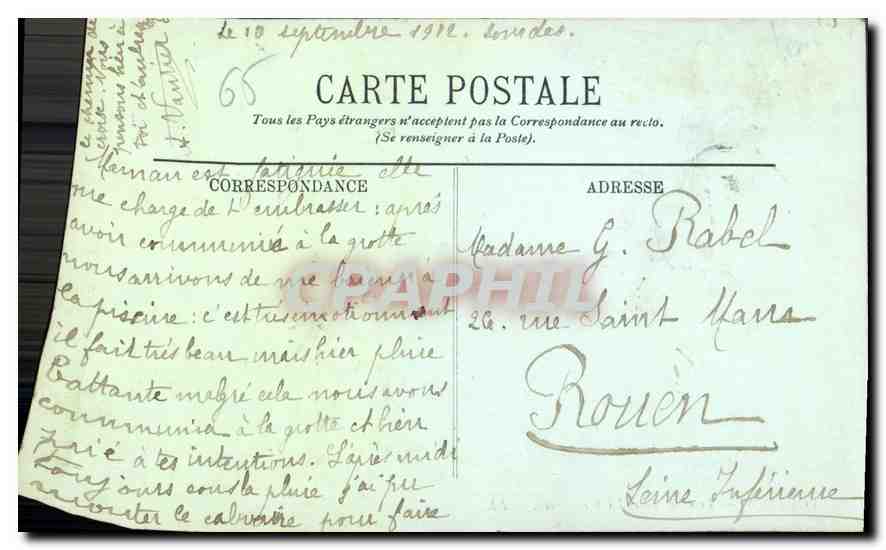 Le 10 septembre 1912. Lourdes.
65
CARTE POSTALE
Tous les Pays étrangers n'acceptent pas la Correspondance au recto.
(Se renseigner à la Poste).
CORRESPONDANCE
Maman est fatiguée elle
me charge de t'embrasser : après
avoir communié à la grotte
nous arrivons de me baigner à
la piscine : c'est très émotionnant
il fait très beau mais hier pluie
battante malgré cela nous avons
communié à la grotte et bien
prié à tes intentions. L'après midi
toujours sous la pluie j'ai pu
monter le calvaire pour faire
le chemin de
croix. Nous
pensons bien à
toi et
A. Vautier
ADRESSE
Madame G. Rabel
26. rue Saint Maur
Rouen
Seine Inférieure
CPAPHIL